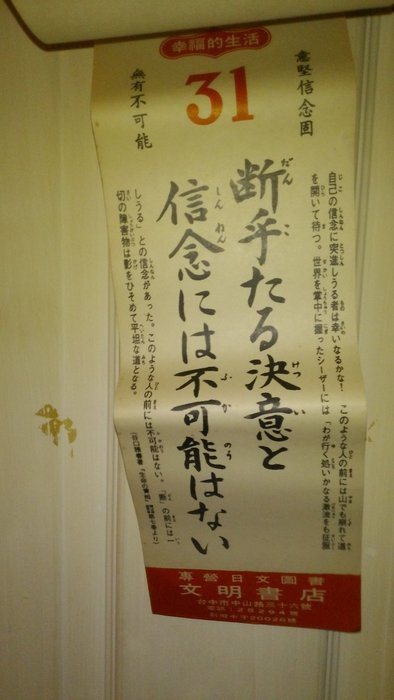 幸福的生活
意堅信念固
31
無有不可能
自己の信念に突進しうる者は幸いなるかな！　このような人の前には山でも崩れて道
を開いて待つ。世界を掌中に握ったシーザーには「わが行く処いかなる激流をも征服
断乎たる決意と
信念には不可能はない
しうる」との信念があった。このような人の前には不可能はない。「断」の前には一
切の障害物は影をひそめて平坦な道となる。
（谷口雅春著『生命の實相』第七巻より）
專營日文圖書
文明書店
台中市中山路三十六號
電話：25294號
20026號